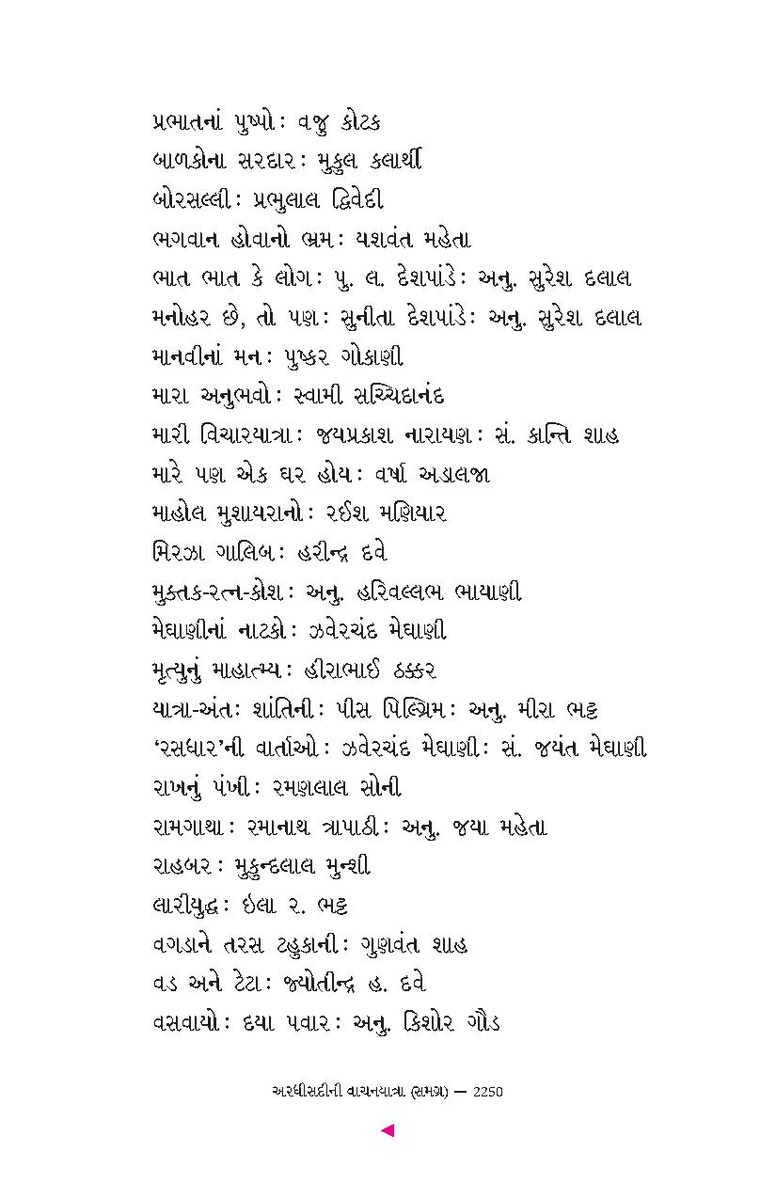 પ્રભાતનાં પુષ્પો : વજુ કોટક
બાળકોના સરદાર : મુકુલ કલાર્થી
બોરસલ્લી : પ્રભુલાલ દ્વિવેદી
ભગવાન હોવાનો ભ્રમ : યશવંત મહેતા
ભાત ભાત કે લોગ : પુ. લ. દેશપાંડે : અનુ. સુરેશ દલાલ
મનોહર છે, તો પણ : સુનીતા દેશપાંડે : અનુ. સુરેશ દલાલ
માનવીનાં મન : પુષ્કર ગોકાણી
મારા અનુભવો : સ્વામી સચ્ચિદાનંદ
મારી વિચારયાત્રા : જયપ્રકાશ નારાયણ : સં. કાન્તિ શાહ
મારે પણ એક ઘર હોય : વર્ષા અડાલજા
માહોલ મુશાયરાનો : રઈશ મણિયાર
મિરઝા ગાલિબ : હરીન્દ્ર દવે
મુક્તક-રત્ન-કોશ : અનુ. હરિવલ્લભ ભાયાણી
મેઘાણીનાં નાટકો : ઝવેરચંદ મેઘાણી
મૃત્યુનું માહાત્મ્ય : હીરાભાઈ ઠક્કર
યાત્રા-અંતઃ શાંતિની : પીસ પિલ્ગ્રિમ : અનુ. મીરા ભટ્ટ
‘રસધાર’ની વાર્તાઓ : ઝવેરચંદ મેઘાણી : સં. જયંત મેઘાણી
રાખનું પંખી : રમણલાલ સોની
રામગાથા : રમાનાથ ત્રાપાઠી : અનુ. જયા મહેતા
રાહબર : મુકુન્દલાલ મુન્શી
લારીયુદ્ધ : ઇલા ર. ભટ્ટ
વગડાને તરસ ટહુકાની : ગુણવંત શાહ
વડ અને ટેટા : જ્યોતીન્દ્ર હ. દવે
વસવાયો : દયા પવાર : અનુ. કિશોર ગૌડ
અરધીસદીની વાચનયાત્રા (સમગ્ર) — 2250